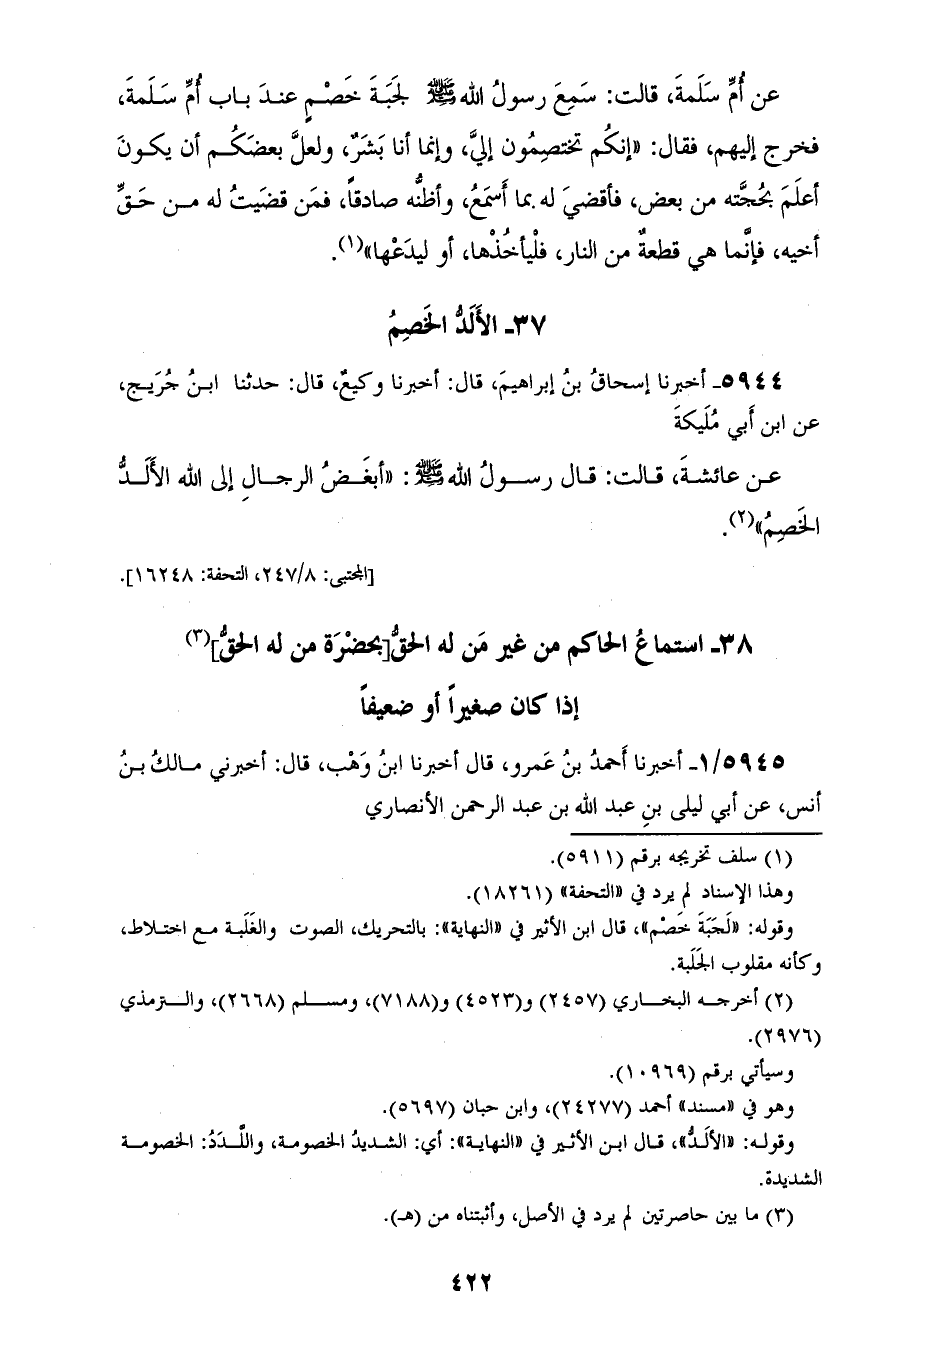 عن أُمِّ سَلَمةَ، قالت: سَمِعَ رسولُ الله ﷺ لَجَبَةَ خَصْمٍ عندَ باب أُمِّ سَلَمة،
فخرج إليهم، فقال: «إنكُم تختصِمُون إليَّ، وإنما أنا بَشَرٌ، ولعلَّ بعضَكُم أن يكونَ
أعلَمَ بحُجَّته من بعض، فأقضيَ له بما أَسمَعُ، وأظنُّه صادقاً، فمَن قضَيتُ له من حَقِّ
أخيه، فإنَّما هي قطعةٌ من النار، فلْيأخُذْها، أو ليدَعْها»(١).
٣٧- الأَلَدُّ الخَصِمُ
٥٩٤٤- أخبرنا إسحاقُ بنُ إبراهيمَ، قال: أخبرنا وكيعٌ، قال: حدثنا ابنُ جُرَيج،
عن ابن أَبي مُلَيكةَ
عن عائشةَ، قالت: قال رسولُ الله ﷺ: «أبغَضُ الرجالِ إلى الله الأَلَدُّ
الخَصِمُ»(٢).
[المجتبى: ٢٤٧/٨، التحفة: ١٦٢٤٨].
٣٨- استماعُ الحاكم من غير مَن له الحقُّ[بحضْرَة من له الحقُّ](٣)
إذا كان صغيراً أو ضعيفاً
١/٥٩٤٥- أخبرنا أَحمدُ بنُ عَمرو، قال أخبرنا ابنُ وَهْب، قال: أخبرني مالكُ بنُ
أنس، عن أبي ليلى بنِ عبد الله بن عبد الرحمن الأنصاري
(١) سلف تخريجه برقم (٥٩١١).
وهذا الإسناد لم يرد في «التحفة» (١٨٢٦١).
وقوله: «لَجَبَةَ خَصْم»، قال ابن الأثير في «النهاية»: بالتحريك، الصوت والغَلَبة مع اختلاط،
وكأنه مقلوب الجَلَبة.
(٢) أخرجه البخاري (٢٤٥٧) و(٤٥٢٣) و(٧١٨٨)، ومسلم (٢٦٦٨)، والترمذي
(٢٩٧٦).
وسيأتي برقم (١٠٩٦٩).
وهو في «مسند» أحمد (٢٤٢٧٧)، وابن حبان (٥٦٩٧).
وقوله: «الألَدُّ»، قال ابن الأثير في «النهاية»: أي: الشديدُ الخصومة، واللَّدَدُ: الخصومة
الشديدة.
(٣) ما بين حاصرتين لم يرد في الأصل، وأثبتناه من (هـ).
٤٢٢